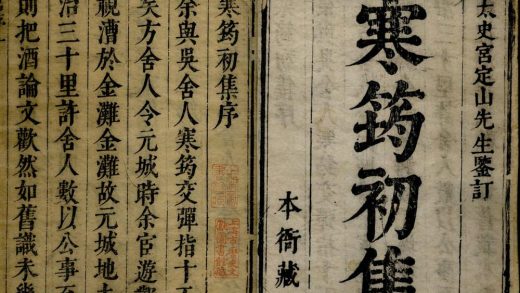 太史宮定山先生鑒訂
寒筠初集
本衙藏
寒筠初集序
余與吳舍人寒筠交彈指十
矣方舍人令元城時余官遊
視漕於金灘金灘故元城地
治三十里許舍人數以公事至
則把酒論文歡然如舊識未